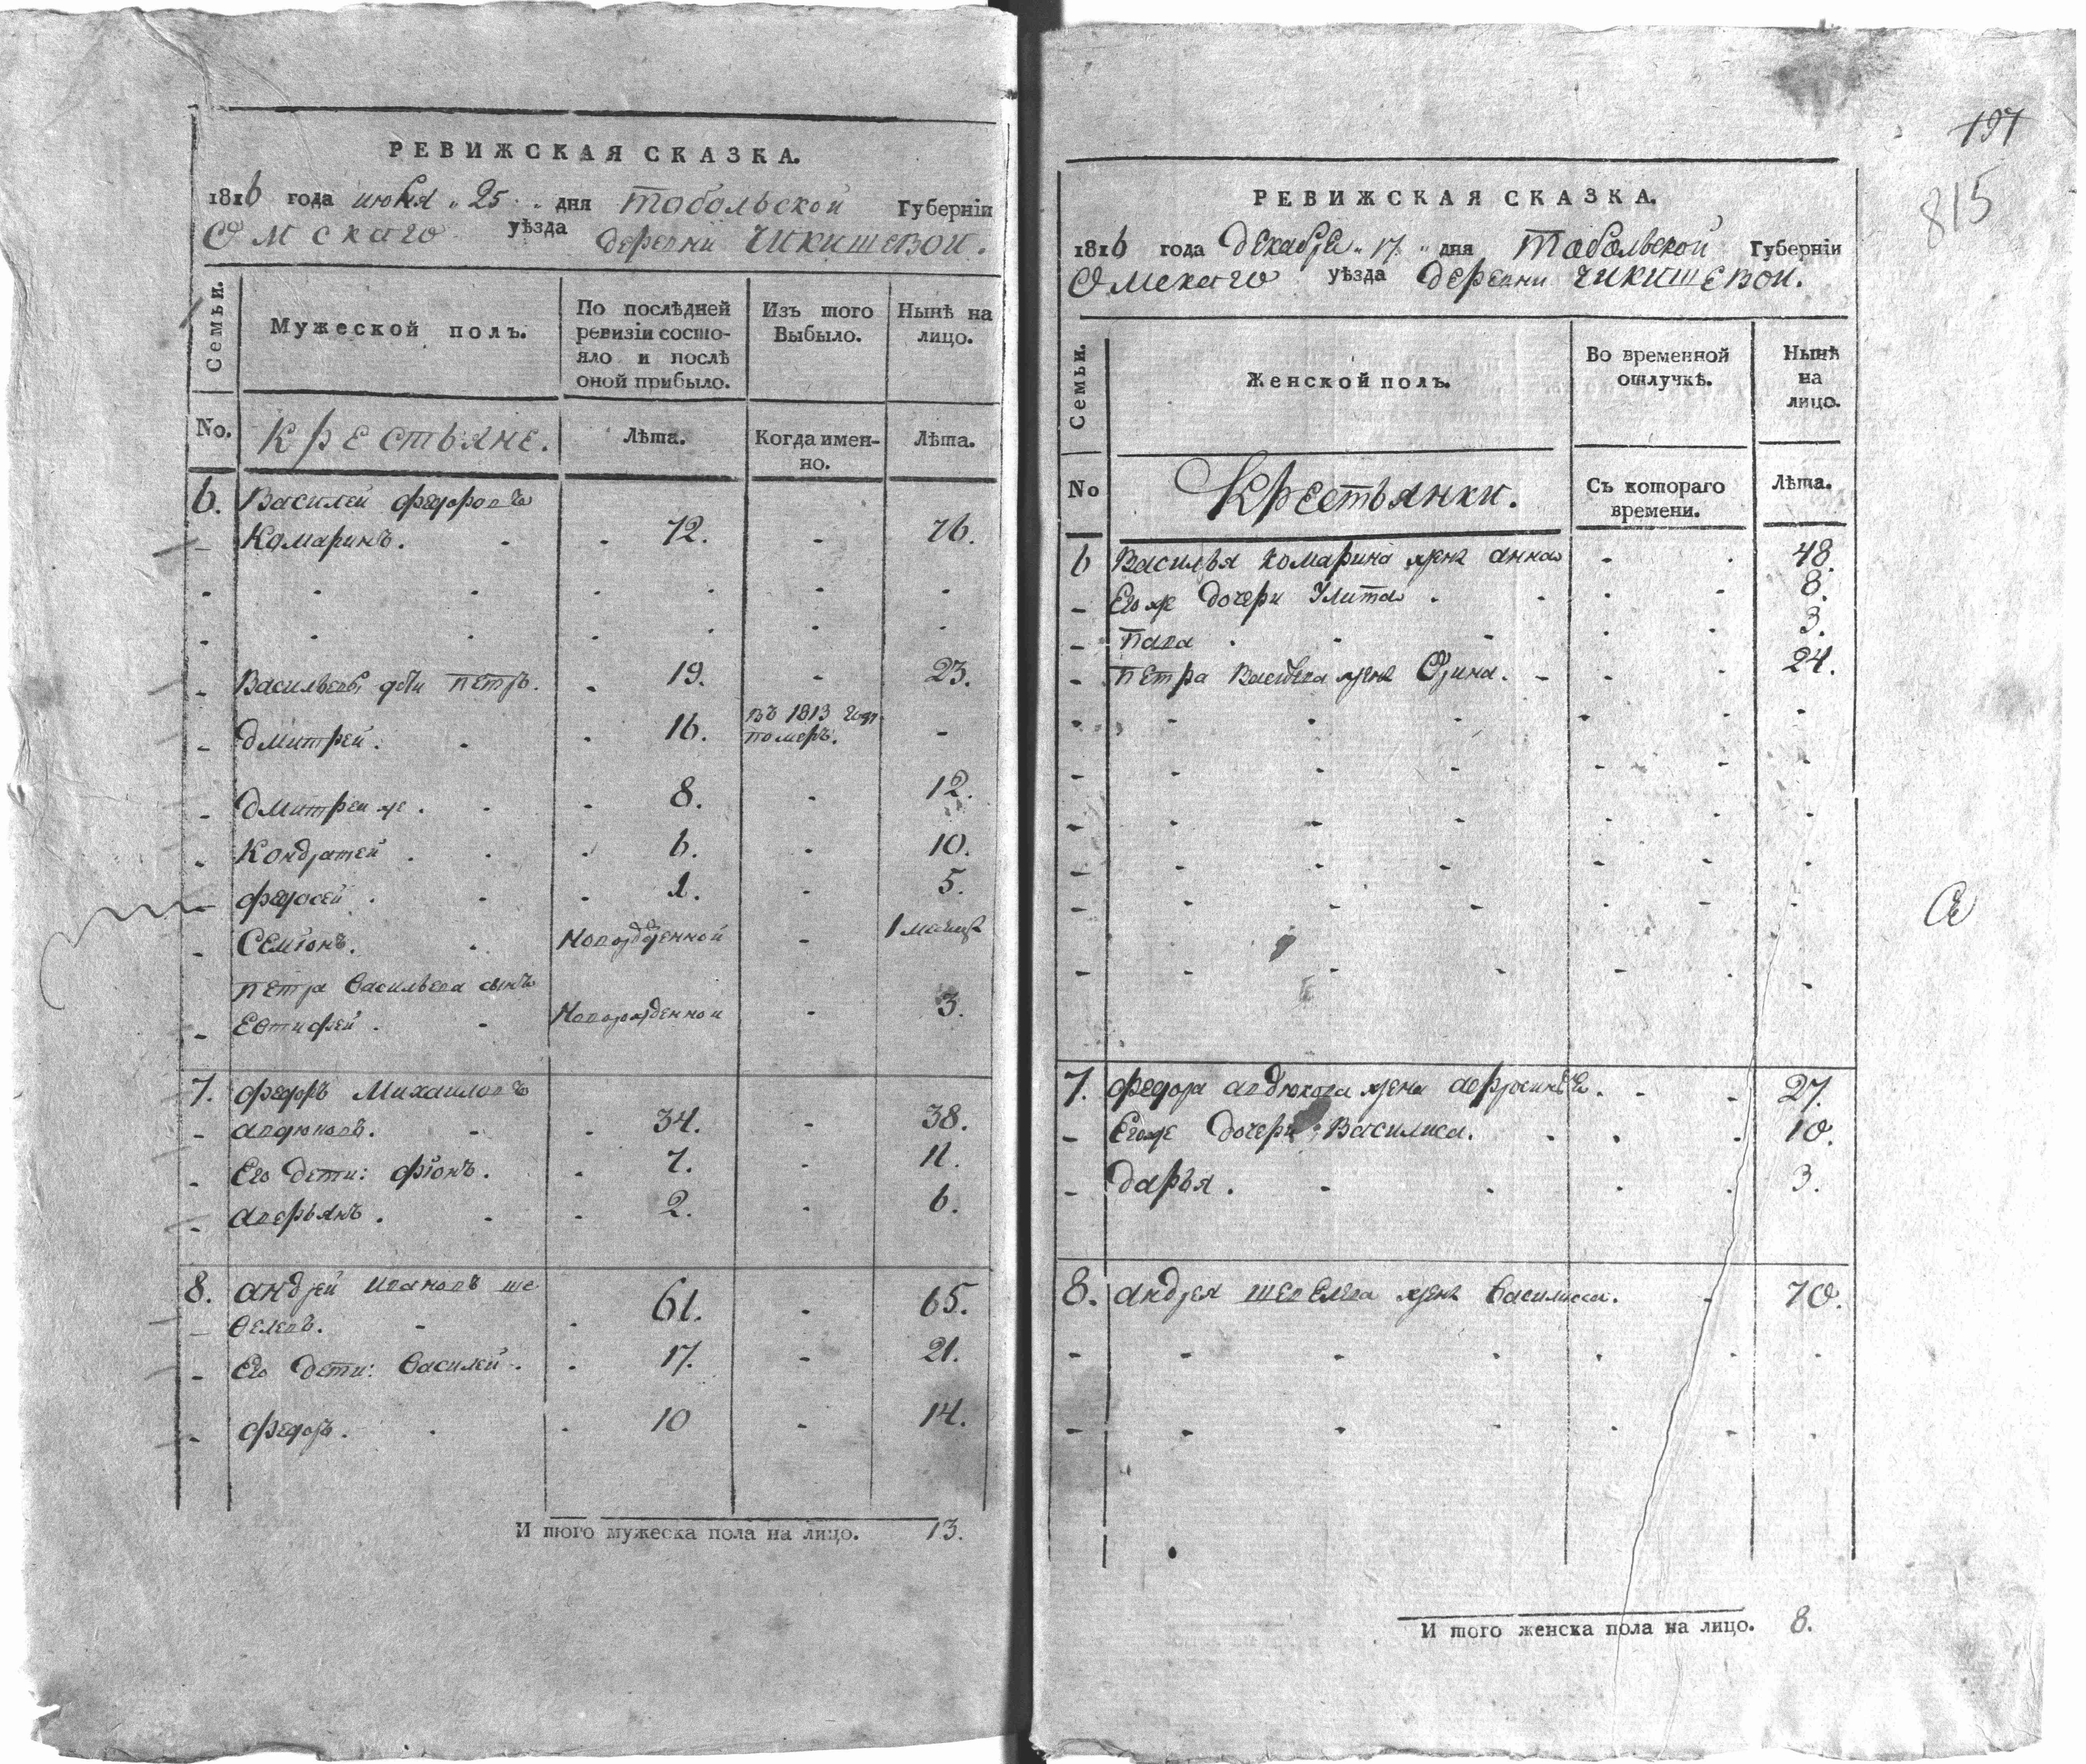 РЕВИЖСКАЯ СКАЗКА.
1816 года июня „ 25 „ дня Тобольской Губернїи
Омскаго уѣзда деревни Чикишевой.
Семьи.
Мужеской полъ.
По послѣдней ревизїи состо-
яло и послѣ
оной прибыло.
Изъ того
Выбыло.
Нынѣ на
лицо.
No. Крестьяне. Лѣта. Когда имен-
но. Лѣта.
6. Василей Федоровъ
Комаринъ. 72. - 76.
Васильевы дѣти Петръ. 19. - 23.
Дмитрей. 16. въ 1813 году
померъ. -
Дмитрей же. 8. - 12.
Кондратей. 6. - 10.
Федосей. 1. - 5.
Семіонъ. Новорожденной - 1 месяцъ
Петра Васильева сынъ
Евтифей. Новорожденной - 3.
7. Федоръ Михаиловъ
Авдюковъ. 34. - 38.
Его дети: Фіонъ. 7. - 11.
Аверьянъ. 2. - 6.
8. Андрей Ивановъ Ше-
велевъ. 61. - 65.
Его дети: Василей. 17. - 21.
Федоръ. 10 - 14.
И того мужеска пола на лицо. 13.
197
815
РЕВИЖСКАЯ СКАЗКА.
1816 года Декабря „ 17 „ дня Тобольской Губернїи
Омскаго уѣзда деревни Чикишевой.
Семьи.
Женской полъ.
Во временной
отлучкѣ.
Нынѣ
на
лицо.
No Крестьянки. Съ котораго
времени. Лѣта.
6 Василья Комарина жена Анна 48.
Его же дочери Улита 8.
3.
Петра Васильева жена Орина. 24.
7. Федора Авдюкова жена 27.
Его же дочери: Василиса. 10.
Дарья. 3.
8. Андрея Шевелева жена Василиса. 70.
И того женска пола на лицо. 8.